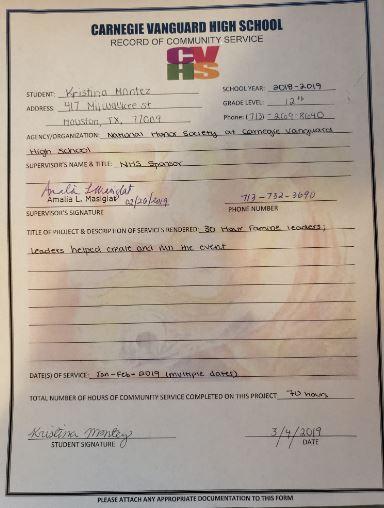 CARNEGIE VANGUARD HIGH SCHOOL
RECORD OF COMMUNITY SERVICE
CV
HS
STUDENT: Kristina Montez SCHOOL YEAR: 2018-2019
ADDRESS: 917 Milwaukee st GRADE LEVEL: 12th
Houston, TX, 77009 Phone: (713) - 269-8690
AGENCY/ORGANIZATION: National Honor Society at Carnegie Vanguard
High School
SUPERVISOR'S NAME & TITLE: NHS Sponsor
Amalia L. Masiglat
Amalia L. Masiglat 02/20/2019 713-732-3690
SUPERVISOR'S SIGNATURE PHONE NUMBER
TITLE OF PROJECT & DESCRIPTION OF SERVICES RENDERED: 30 Hour Famine leaders;
leaders helped create and run the event
DATE(S) OF SERVICE: Jan-Feb-2019 (multiple dates)
TOTAL NUMBER OF HOURS OF COMMUNITY SERVICE COMPLETED ON THIS PROJECT 70 hours
Kristina Montez 3/4/2019
STUDENT SIGNATURE DATE
PLEASE ATTACH ANY APPROPRIATE DOCUMENTATION TO THIS FORM